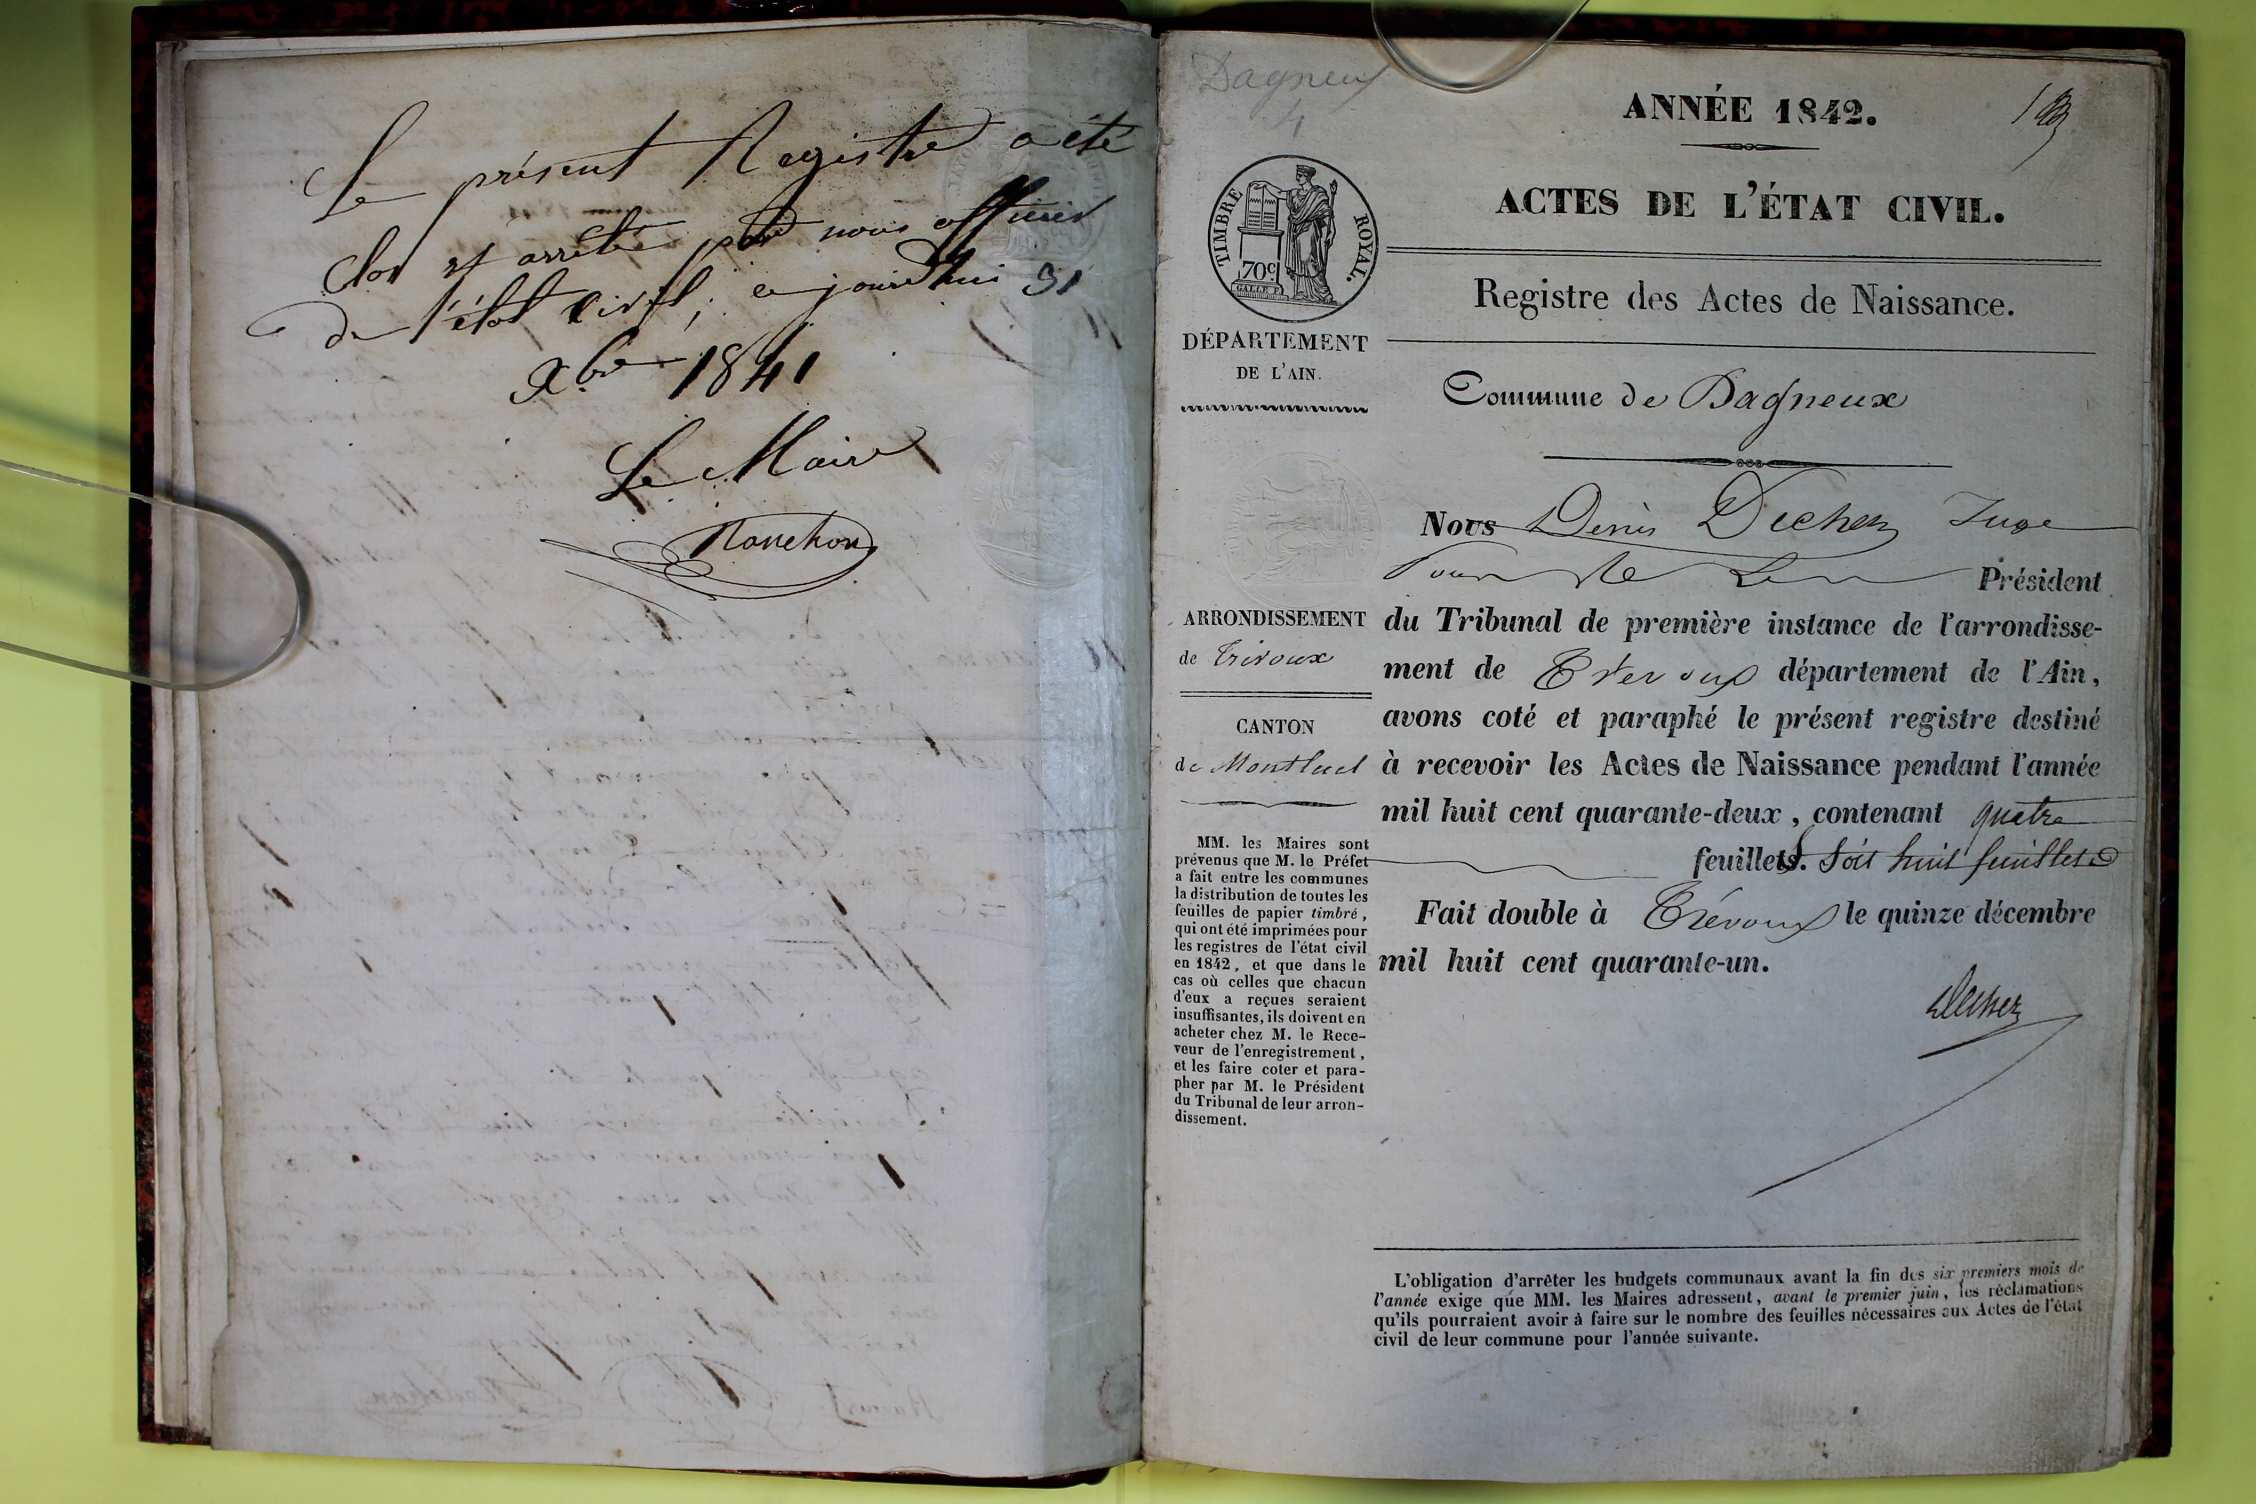 Le présent Registre a été
clos et arrêté par nous officier
de l'état civil, ce jourd'hui 31
Xbre 1841
Le Maire
Ranchon
Dagneux
4
TIMBRE ROYAL.
70c
GALLE F.
DÉPARTEMENT
DE L'AIN.
ARRONDISSEMENT
de Trévoux
CANTON
de Montluel
MM. les Maires sont
prévenus que M. le Préfet
a fait entre les communes
la distribution de toutes les
feuilles de papier timbré,
qui ont été imprimées pour
les registres de l'état civil
en 1842, et que dans le
cas où celles que chacun
d'eux a reçues seraient
insuffisantes, ils doivent en
acheter chez M. le Rece-
veur de l'enregistrement,
et les faire coter et para-
pher par M. le Président
du Tribunal de leur arron-
dissement.
ANNÉE 1842.
ACTES DE L'ÉTAT CIVIL.
Registre des Actes de Naissance.
Commune de Dagneux
Nous Denis Decher Juge
Pour le Président
du Tribunal de première instance de l'arrondisse-
ment de Trévoux département de l'Ain,
avons coté et paraphé le présent registre destiné
à recevoir les Actes de Naissance pendant l'année
mil huit cent quarante-deux, contenant quatre
feuilles. Soit huit feuillets
Fait double à Trévoux le quinze décembre
mil huit cent quarante-un.
Decher
L'obligation d'arrêter les budgets communaux avant la fin des six premiers mois de
l'année exige que MM. les Maires adressent, avant le premier juin, les réclamations
qu'ils pourraient avoir à faire sur le nombre des feuilles nécessaires aux Actes de l'état
civil de leur commune pour l'année suivante.